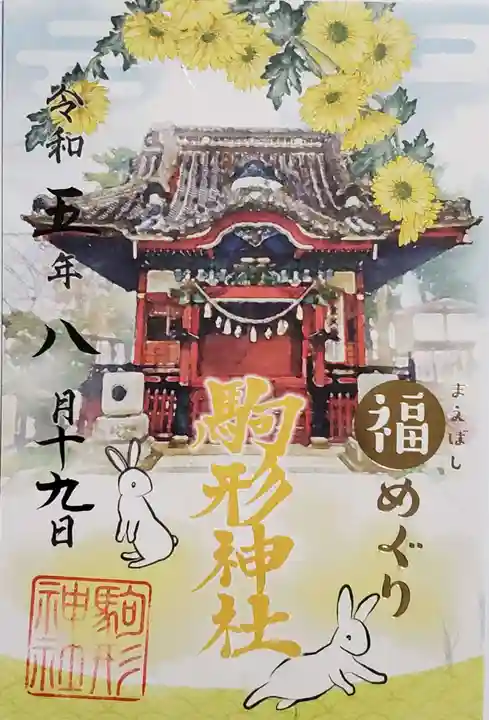 まえばし
福めぐり
駒形神社
令和五年八月十九日
駒形
神社